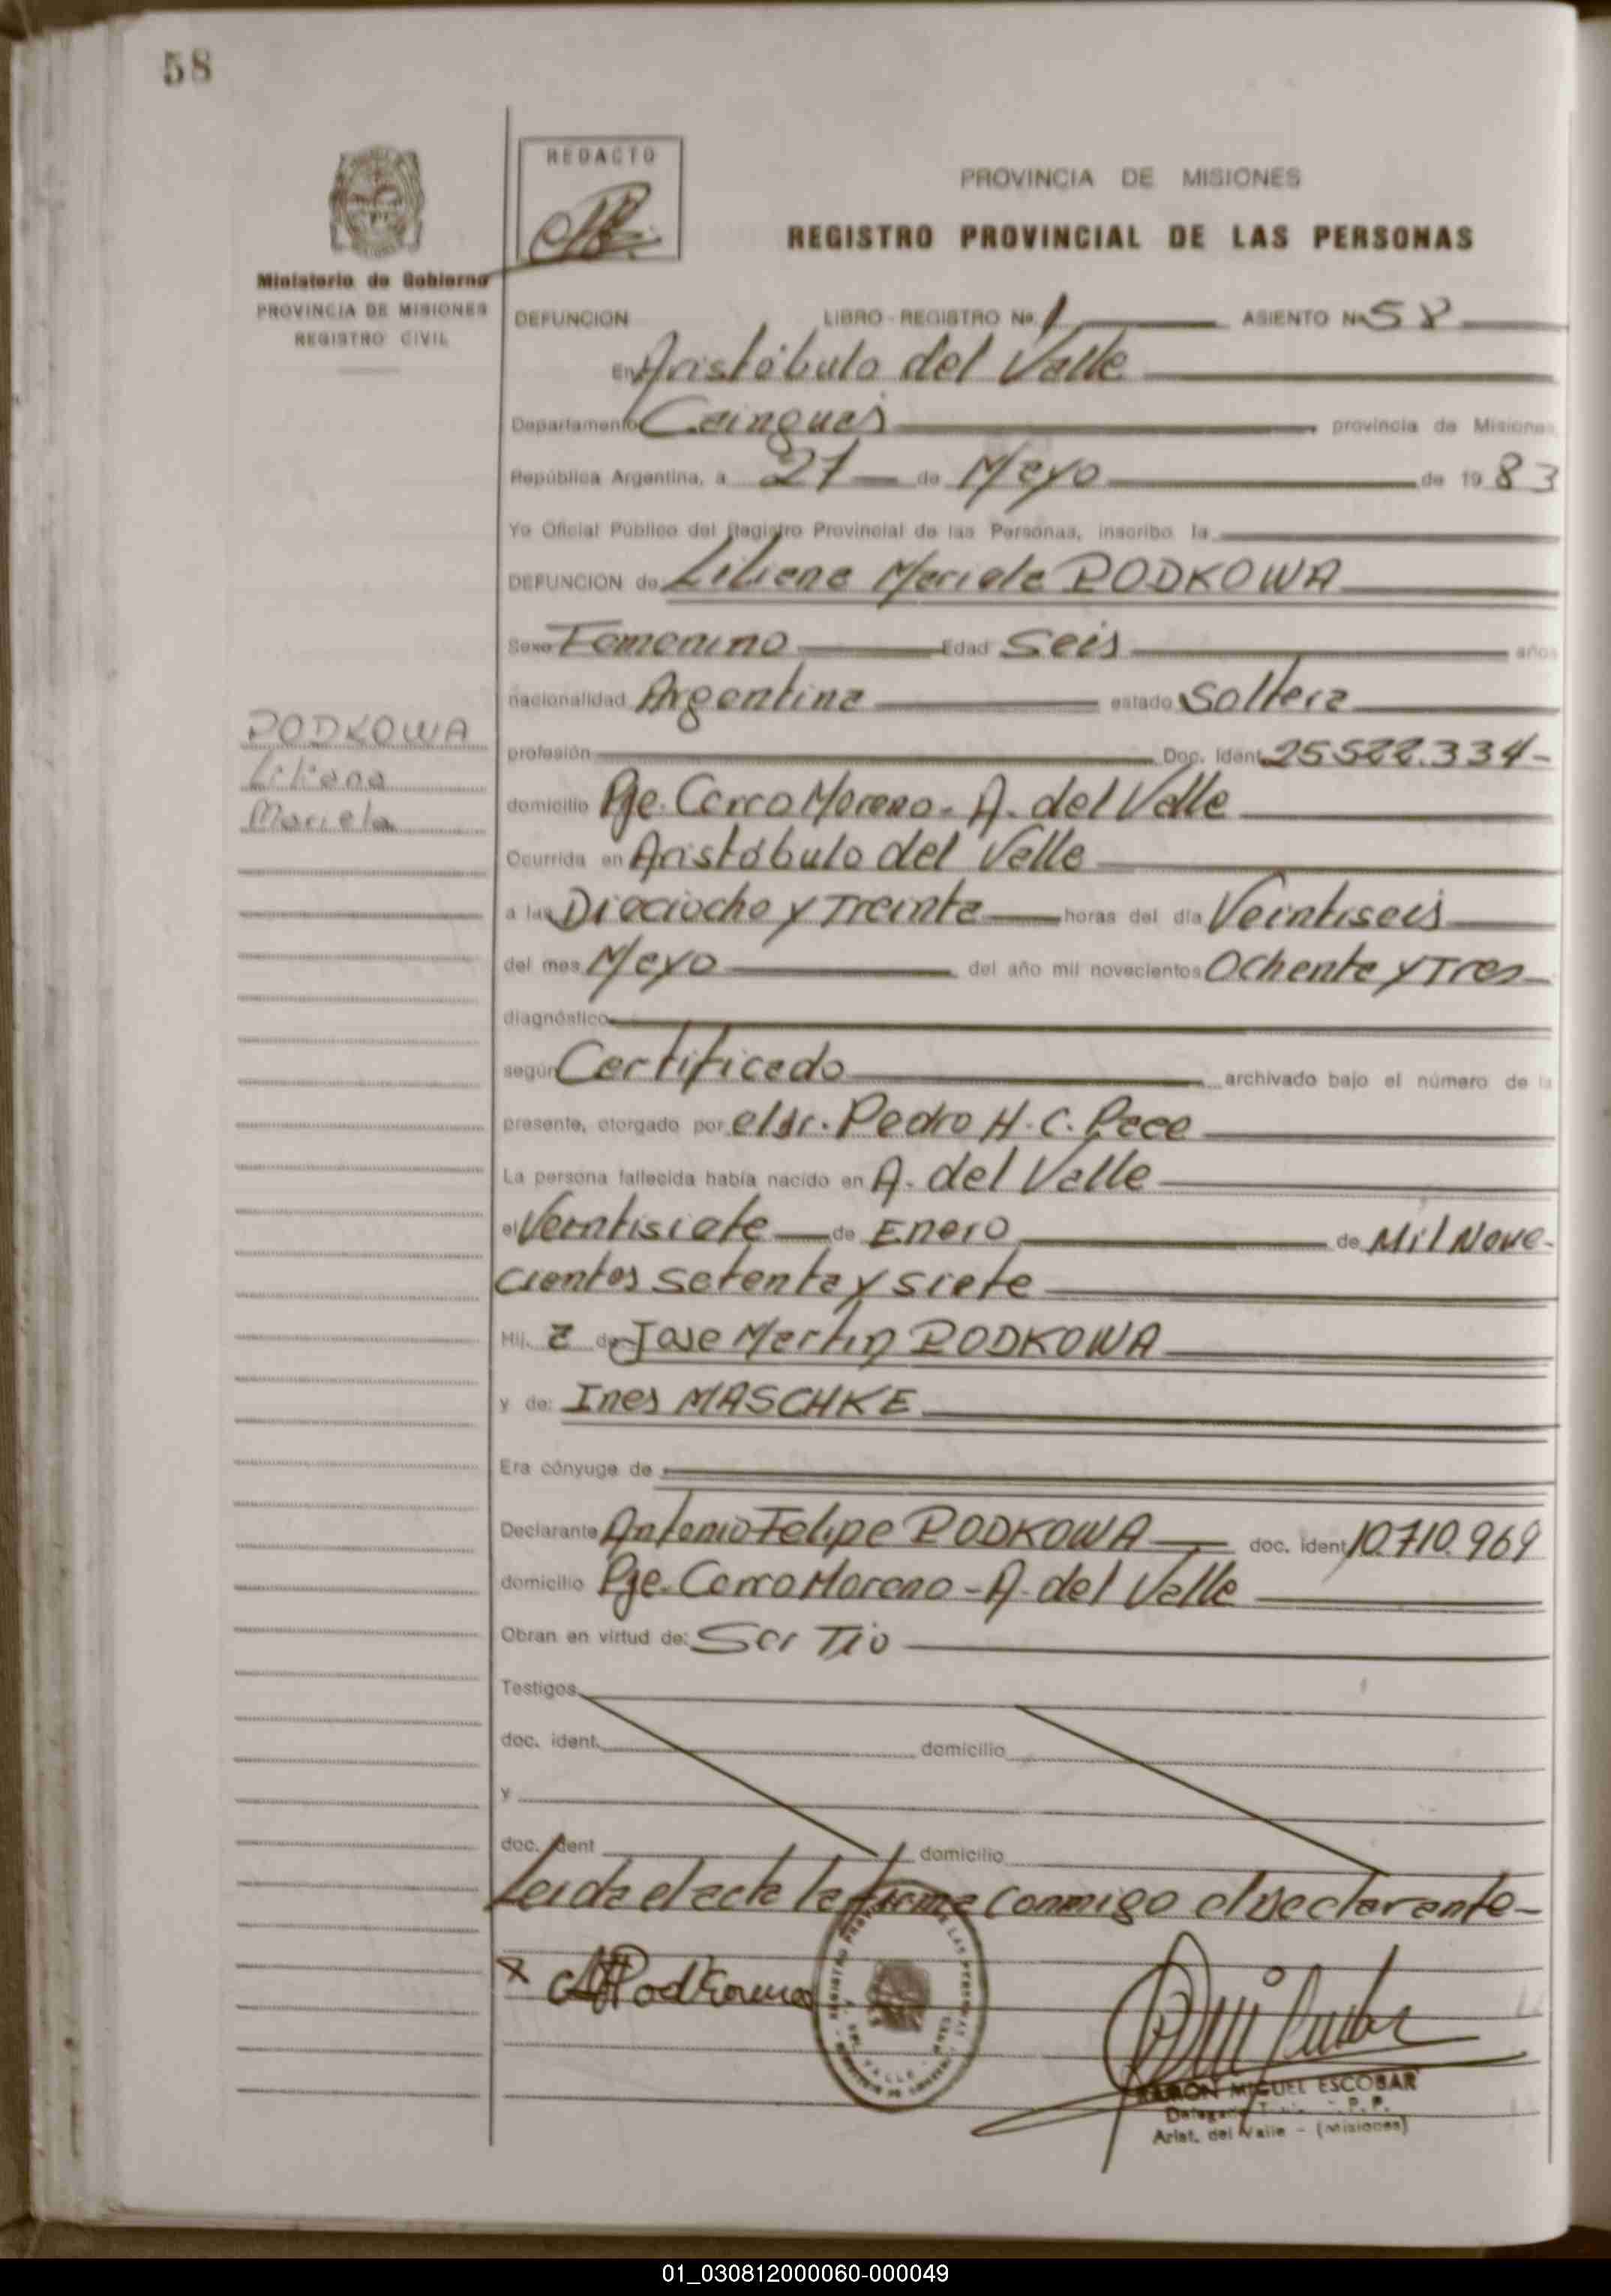 58
REDACTO
PROVINCIA DE MISIONES
REGISTRO PROVINCIAL DE LAS PERSONAS
Ministerio de Gobierno
PROVINCIA DE MISIONES
REGISTRO CIVIL
DEFUNCION LIBRO - REGISTRO No. 1 ASIENTO No 58
En Aristóbulo del Valle
Departamento Cainguas provincia de Misiones
República Argentina, a 27 de Mayo de 1983
Yo Oficial Público del Registro Provincial de las Personas, inscribo la
DEFUNCION de Liliana Mariela PODKOWA
Sexo Femenino Edad Seis años
nacionalidad Argentina estado Soltera
PODKOWA
Liliana
Mariela
profesión Doc. Ident. 25.522.334-
domicilio Pje. Cerro Moreno - A. del Valle
Ocurrida en Aristóbulo del Valle
a las Dieciocho y Treinta horas del día Veintiseis
del mes Mayo del año mil novecientos Ochenta y Tres
diagnóstico
según Certificado archivado bajo el número de la
presente, otorgado por el dr. Pedro H. C. Pece
La persona fallecida había nacido en A. del Valle
el Veintisiete de Enero de Mil Nove-
cientos setenta y siete
Hij a de Jose Martin PODKOWA
y de: Ines MASCHKE
Era cónyuge de
Declarante Antonio Felipe PODKOWA doc. ident. 10.710.969
domicilio Pje. Cerro Moreno - A. del Valle
Obran en virtud de: Ser Tio
Testigos
doc. ident. domicilio
y
doc. ident domicilio
Leida el acta la firma conmigo el declarante-
x APodkowa
RAMON MIGUEL ESCOBAR
Arist. del Valle - (Misiones)
01_030812000060-000049